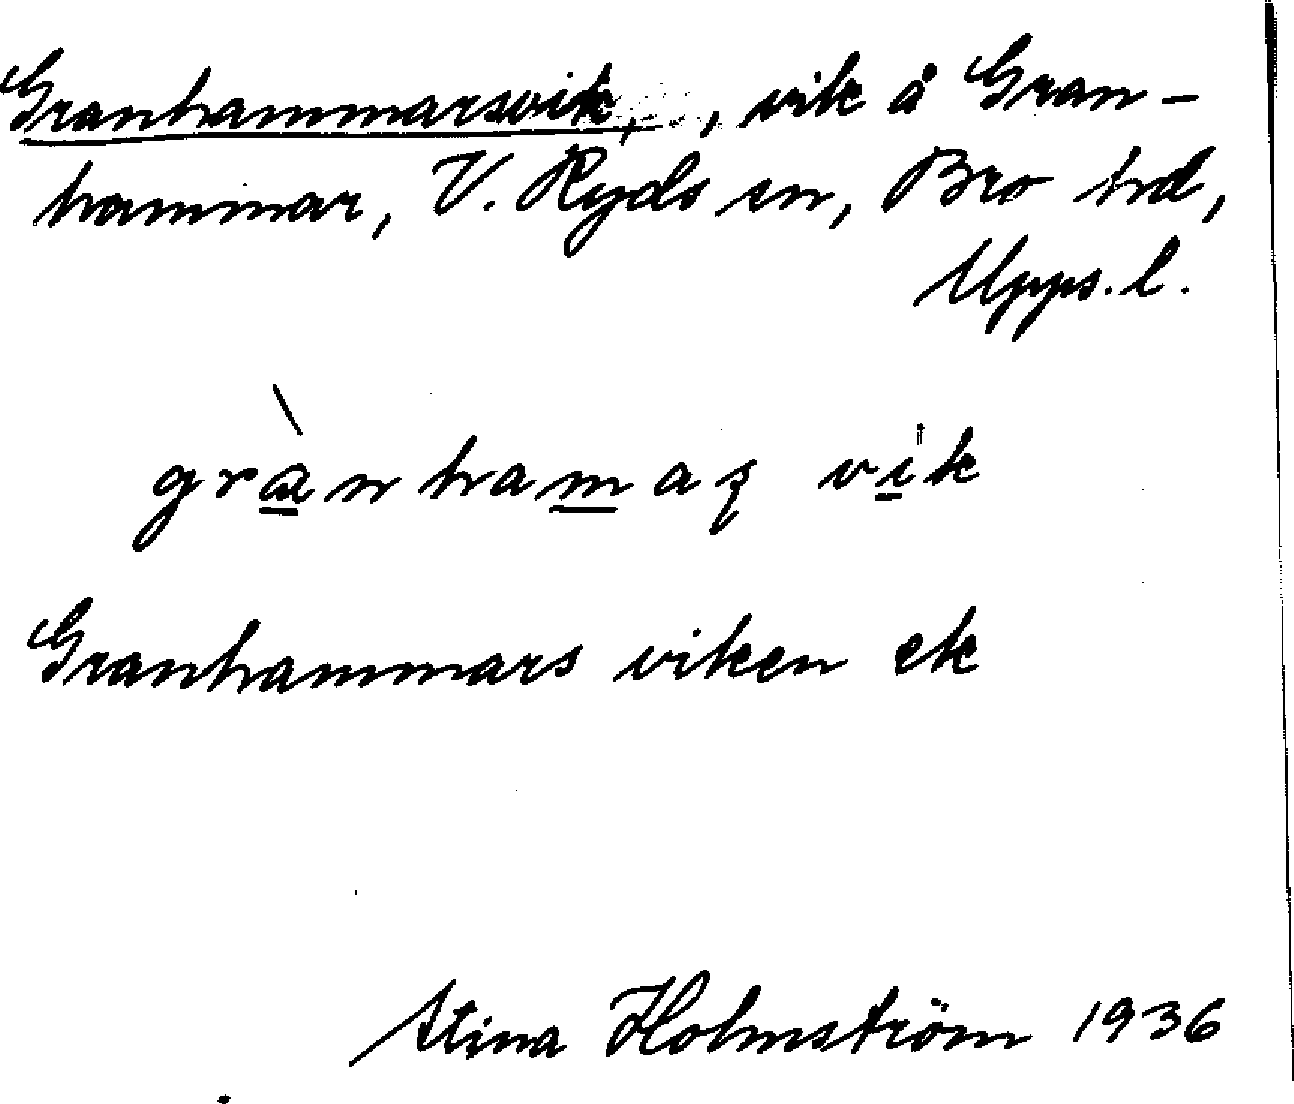 Granhammarsvik, vik å Gran-
hammar, V. Ryds sn, Bro hd,
Upps. l.
grànhamaʂ vik
Granhammars viken ek
Stina Holmström 1936